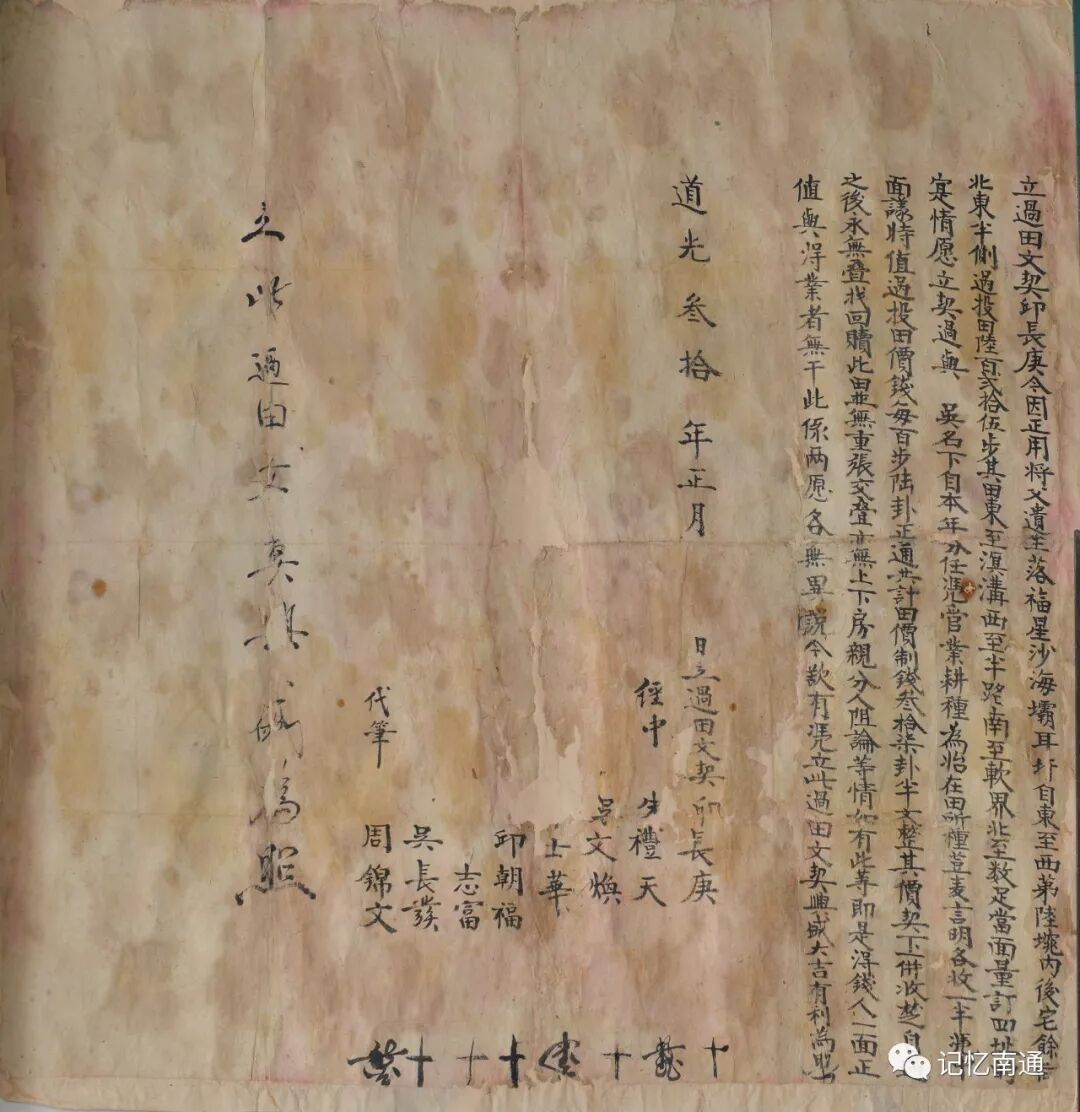 立過田文契邱長庚今因正用将父遺坐落福星沙海壩耳圩自東至西第陸埦内後宅餘
北東半側過投田陸百弍拾伍步其田東至滨溝西至半路南至軟界北至数足當面量訂四址
定情愿立契過與 吴名下自本年分任凴管業耕種為始在田所種荳麦言明各收一半凴中
面議時值過投田價錢每百步陆卦正通共計田價制錢叁拾柒卦半文整其價契下併收楚自
之後永無叠找回贖此田並無重張交叠亦無上下房親分人阻論等情如有此等即是淂錢人一面正
值與淂業者無干此係两愿各無異說今欲有凴立此過田文契興盛大吉有利為照
道光叁拾年正月 日立過田文契邱長庚 十
經中 禮天
吴文煥 十
士華
邱朝福 十
志富 十
吳長發 十
代筆 周錦文
立此過田文契 為照
记忆南通